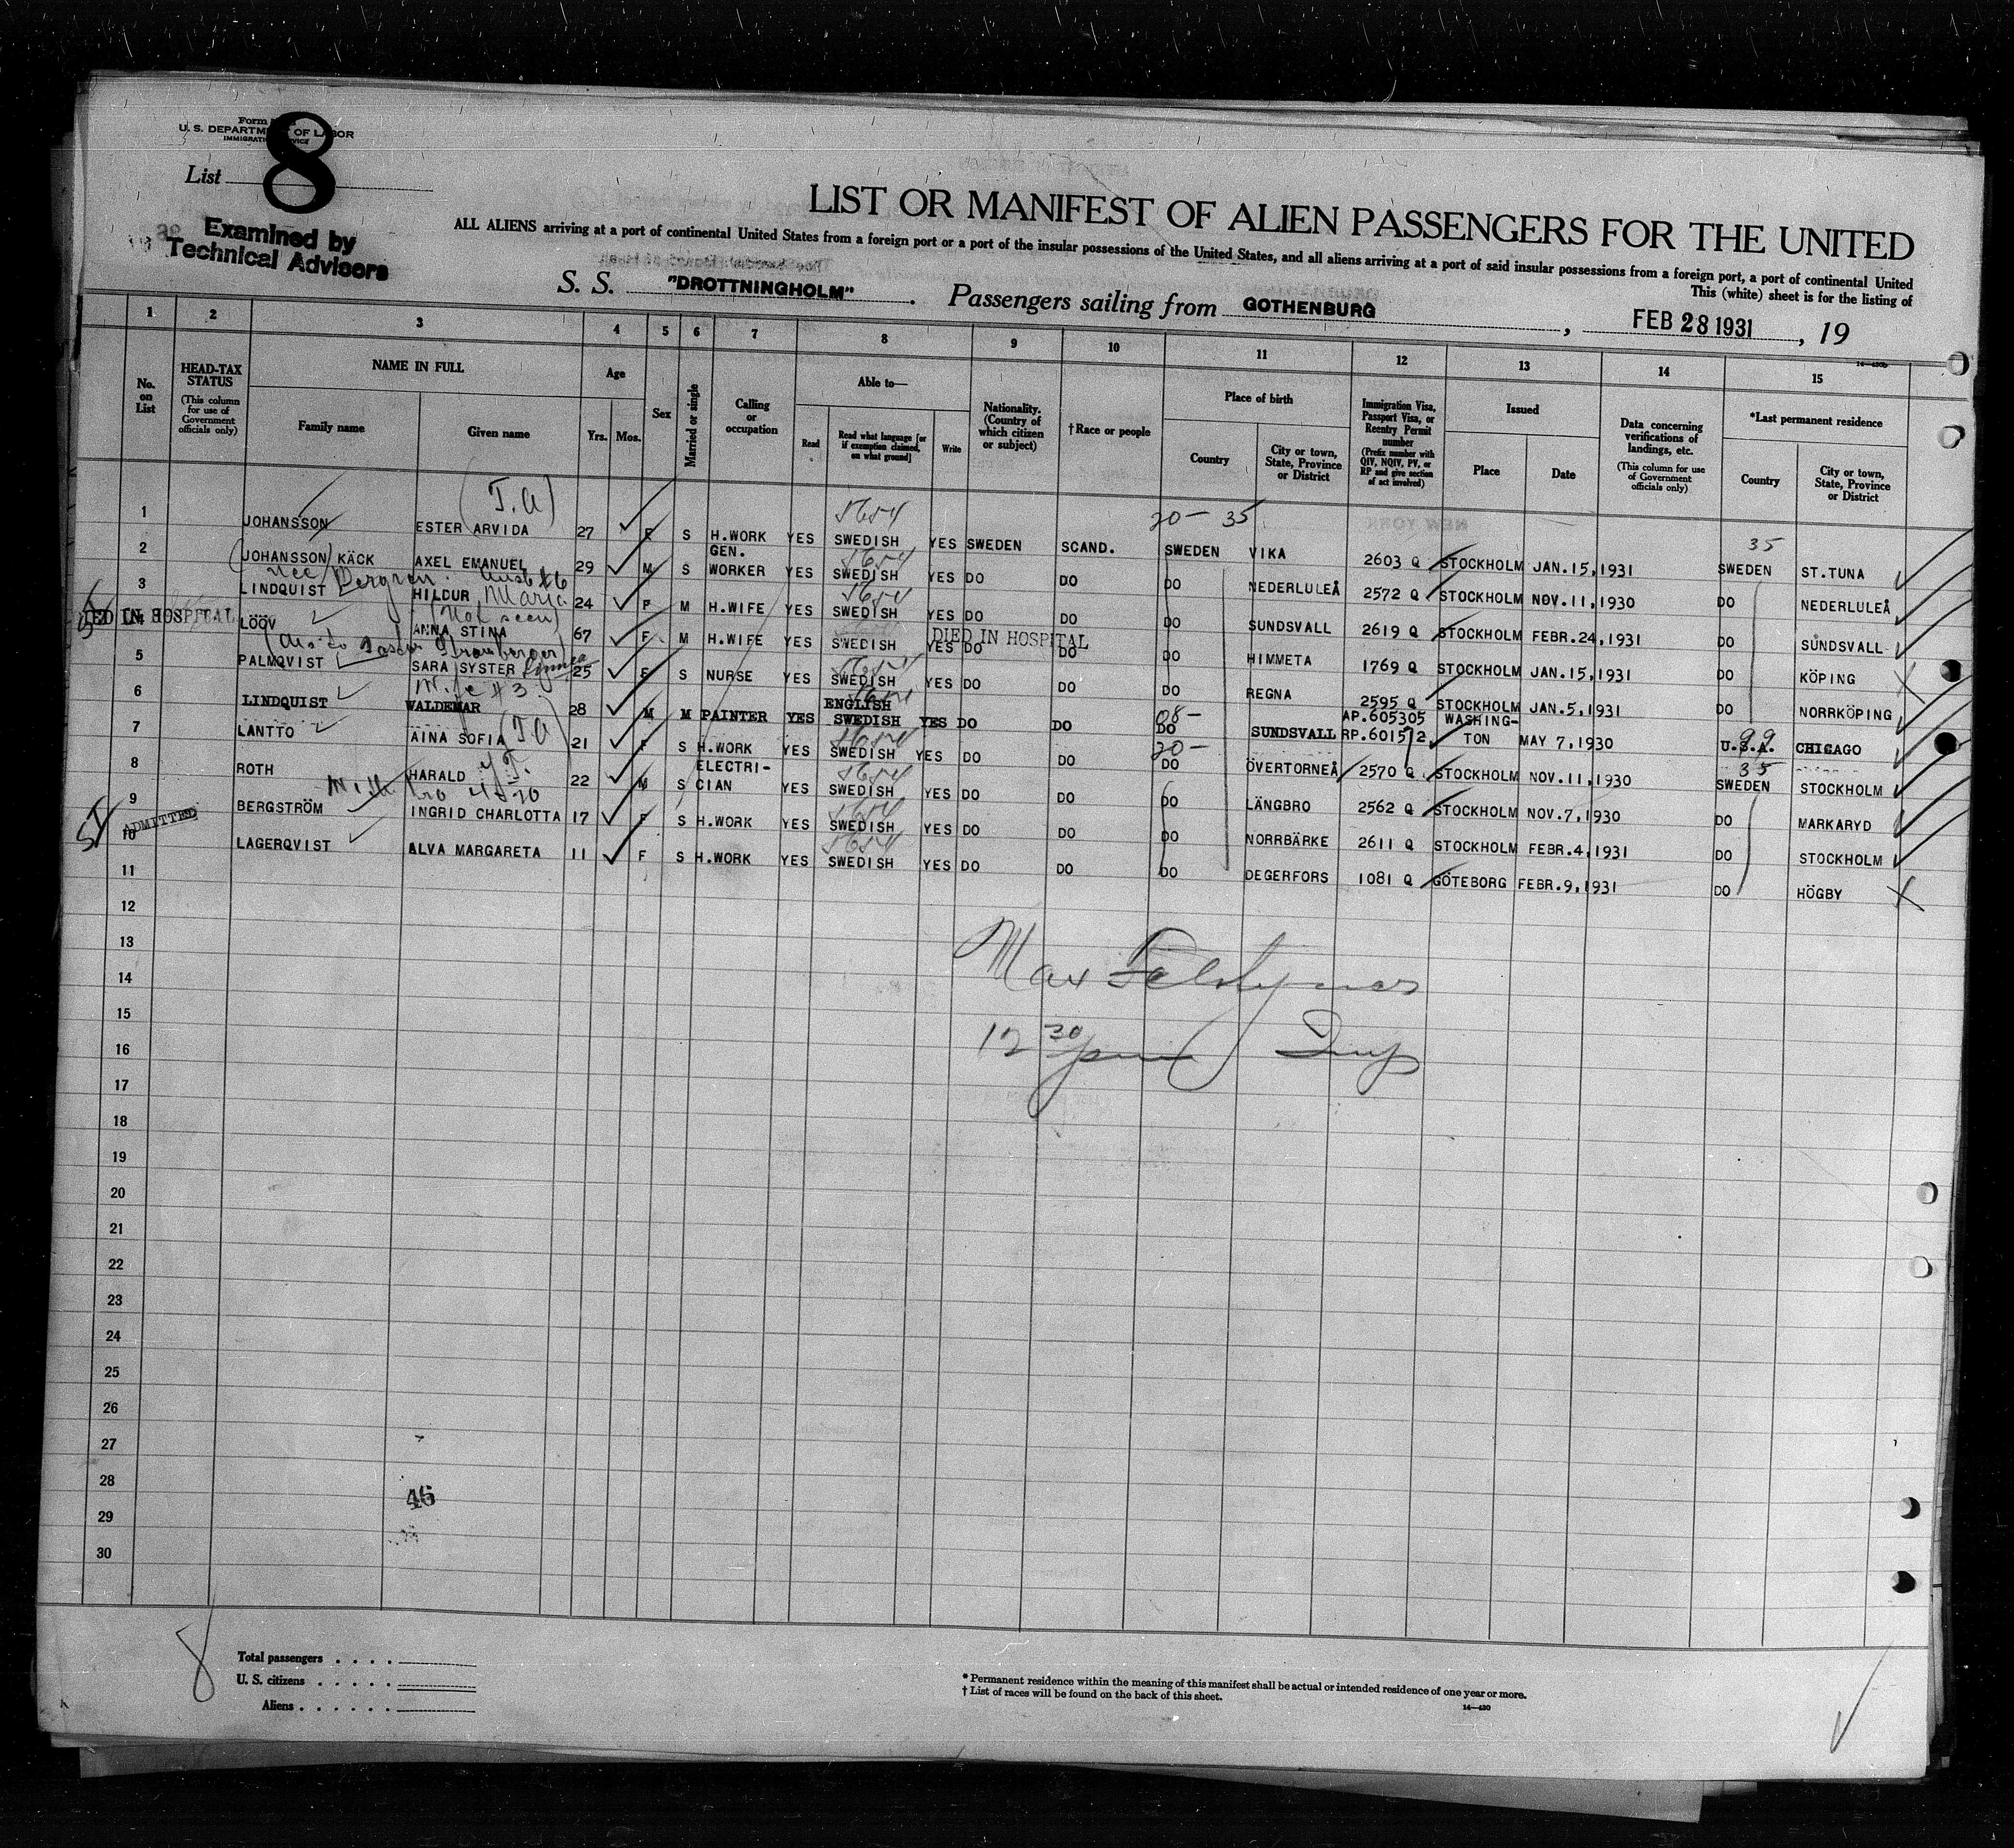 Form
U. S. DEPARTMENT OF LABOR
IMMIGRATION SERVICE
List 8
Examined by
Technical Advisors
LIST OR MANIFEST OF ALIEN PASSENGERS FOR THE UNITED
ALL ALIENS arriving at a port of continental United States from a foreign port or a port of the insular possessions of the United States, and all aliens arriving at a port of said insular possessions from a foreign port, a port of continental United
This (white) sheet is for the listing of
S. S. "DROTTNINGHOLM". Passengers sailing from GOTHENBURG, FEB 28 1931, 19
14-430b
1 2 3 4 5 6 7 8 9 10 11 12 13 14 15
No. on List
HEAD-TAX STATUS (This column for use of Government officials only)
NAME IN FULL
Family name
Given name
Age
Yrs. Mos.
Sex
Married or single
Calling or occupation
Able to—
Read
Read what language [or if exemption claimed, on what ground]
Write
Nationality. (Country of which citizen or subject)
†Race or people
Place of birth
Country
City or town, State, Province or District
Immigration Visa, Passport Visa, or Reentry Permit number (Prefix number with QIV, NQIV, PV, or RP and give section of act involved)
Issued
Place
Date
Data concerning verifications of landings, etc. (This column for use of Government officials only)
*Last permanent residence
Country
City or town, State, Province or District
(T.A) 5654 20- 35 35
1 JOHANSSON ESTER ARVIDA 27 F S H.WORK YES SWEDISH YES SWEDEN SCAND. SWEDEN VIKA 2603 Q STOCKHOLM JAN.15,1931 SWEDEN ST.TUNA
2 (JOHANSSON) KÄCK AXEL EMANUEL 29 M S GEN. WORKER YES SWEDISH YES DO DO DO NEDERLULEÅ 2572 Q STOCKHOLM NOV.11,1930 DO NEDERLULEÅ
nee Bergren. Husb #6
3 LINDQUIST HILDUR Maria 24 F M H.WIFE YES SWEDISH YES DO DO DO SUNDSVALL 2619 Q STOCKHOLM FEBR.24,1931 DO SUNDSVALL
(Not seen)
DIED IN HOSPITAL
4 LÖÖV ANNA STINA 67 F M H.WIFE YES SWEDISH YES DO DO DO HIMMETA 1769 Q STOCKHOLM JAN.15,1931 DO KÖPING
DIED IN HOSPITAL
5 PALMQVIST SARA SYSTER Linnea 25 F S NURSE YES SWEDISH YES DO DO DO REGNA 2595 Q STOCKHOLM JAN.5,1931 DO NORRKÖPING
Wife #3
6 LINDQUIST WALDEMAR 28 M M PAINTER YES ENGLISH SWEDISH YES DO DO DO SUNDSVALL AP.605305 RP.601572 WASHINGTON MAY 7,1930 U.S.A. CHICAGO
08- 99
(TA)
7 LANTTO AINA SOFIA 21 F S H.WORK YES SWEDISH YES DO DO DO ÖVERTORNEÅ 2570 Q STOCKHOLM NOV.11,1930 SWEDEN STOCKHOLM
20- 35
8 ROTH HARALD 22 M S ELECTRI-CIAN YES SWEDISH YES DO DO DO LÄNGBRO 2562 Q STOCKHOLM NOV.7,1930 DO MARKARYD
9 BERGSTRÖM INGRID CHARLOTTA 17 F S H.WORK YES SWEDISH YES DO DO DO NORRBÄRKE 2611 Q STOCKHOLM FEBR.4,1931 DO STOCKHOLM
ADMITTED
10 LAGERQVIST ALVA MARGARETA 11 F S H.WORK YES SWEDISH YES DO DO DO DEGERFORS 1081 Q GÖTEBORG FEBR.9,1931 DO HÖGBY
11
12
13
14
15
16
17
18
19
20
21
22
23
24
25
26
27
28
29
30
Max
12 30 pm Insp
46
8
Total passengers . . . .
U. S. citizens . . . . .
Aliens . . . . . .
* Permanent residence within the meaning of this manifest shall be actual or intended residence of one year or more.
† List of races will be found on the back of this sheet.
14—430